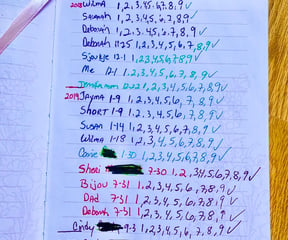 2018 Wilma 1,2,3,4,5,6,7,8,9✓
Savanah 1,2,3,4,5,6,7,8,9✓
Deborah 1,2,3,4,5,6,7,8,9✓
Deborah 11-25 1,2,3,4,5,6,7,8,9✓
12-1 1,2,3,4,5,6,7,8,9✓
Me 12-1 1,2,3,4,5,6,7,8,9✓
12-22 1,2,3,4,5,6,7,8,9✓
2019 Jayma 1-9 1,2,3,4,5,6,7,8,9✓
Short 1-9 1,2,3,4,5,6,7,8,9✓
Susan 1-14 1,2,3,4,5,6,7,8,9✓
Wilma 1-18 1,2,3,4,5,6,7,8,9✓
1-30 1,2,3,4,5,6,7,8,9✓
Shari 7-30 1,2,3,4,5,6,7,8,9✓
Bijou 7-31 1,2,3,4,5,6,7,8,9✓
Dad 7-31 1,2,3,4,5,6,7,8,9✓
Deborah 7-31 1,2,3,4,5,6,7,8,9✓
Cindy 9-3 1,2,3,4,5,6,7,8,9✓